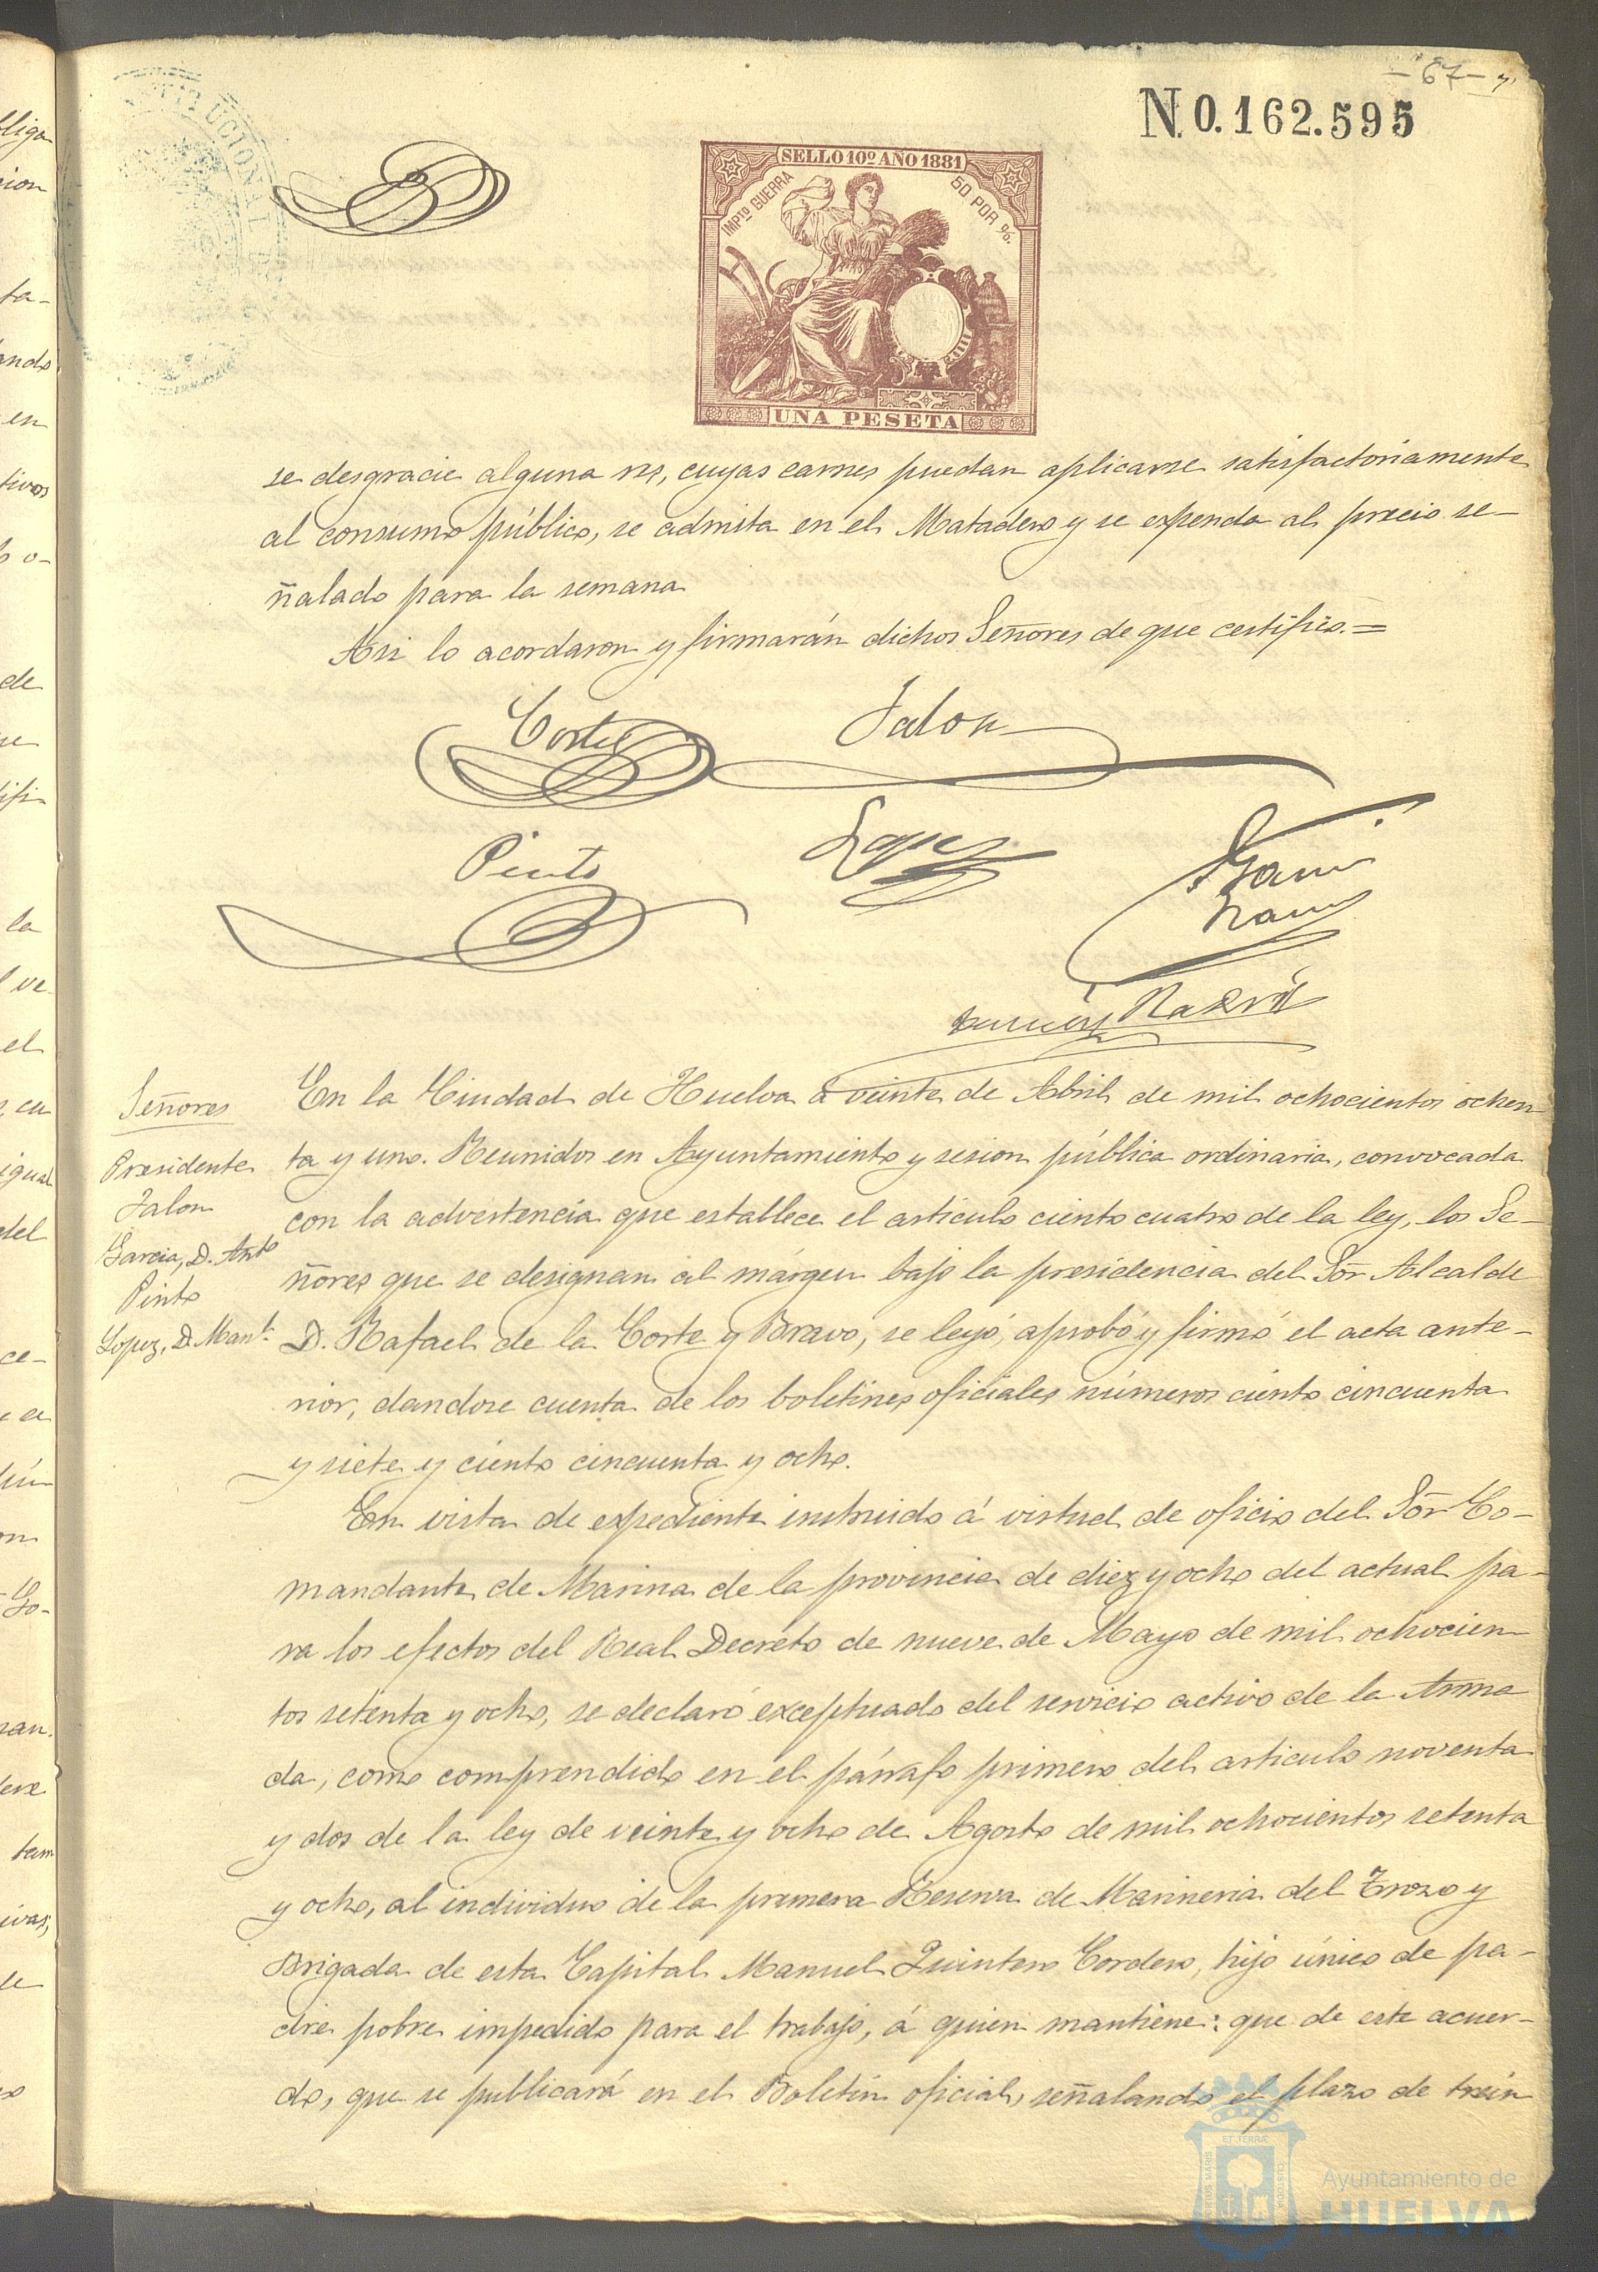 - 67 -
N. 0.162.595
SELLO 10º AÑO 1881
IMPTO GUERRA
50 POR %.
UNA PESETA
se desgracie alguna res, cuyas carnes puedan aplicarse satisfactoriamente
al consumo público, se admita en el Matadero y se expenda al precio se-
ñalado para la semana
Asi lo acordaron y firmarán dichos Señores de que certifico.=
Corte
Jalon
Pinto
Lopez
Garcia
Señores
Presidente
Jalon
Garcia, D. Antº
Pinto
Lopez, D. Manl.
En la Ciudad de Huelva á veinte de Abril de mil ochocientos ochen
ta y uno. Reunidos en Ayuntamiento y sesion pública ordinaria, convocada
con la advertencia que establece el articulo ciento cuatro de la ley, los Se-
ñores que se designan al márgen bajo la presidencia del Sõr Alcalde
D. Rafael de la Corte y Bravo, se leyó, aprobó y firmó el acta ante-
rior, dandose cuenta de los boletines oficiales números ciento cincuenta
y siete y ciento cincuenta y ocho.
En vista de expediente instruido á virtud de oficio del Sõr Co-
mandante de Marina de la provincia de diez y ocho del actual pa-
ra los efectos del Real Decreto de nueve de Mayo de mil ochocien
tos setenta y ocho, se declaró exceptuado del servicio activo de la Arma
da, como comprendido en el párrafo primero del articulo noventa
y dos de la ley de veinte y ocho de Agosto de mil ochocientos setenta
y ocho, al individuo de la primera Reserva de Marineria del Trozo y
Brigada de esta Capital Manuel Quintero Cordero, hijo único de pa-
dre pobre impedido para el trabajo, á quien mantiene: que de este acuer-
do, que se publicará en el Boletin oficial, señalando el plazo de trein
Ayuntamiento de
HUELVA